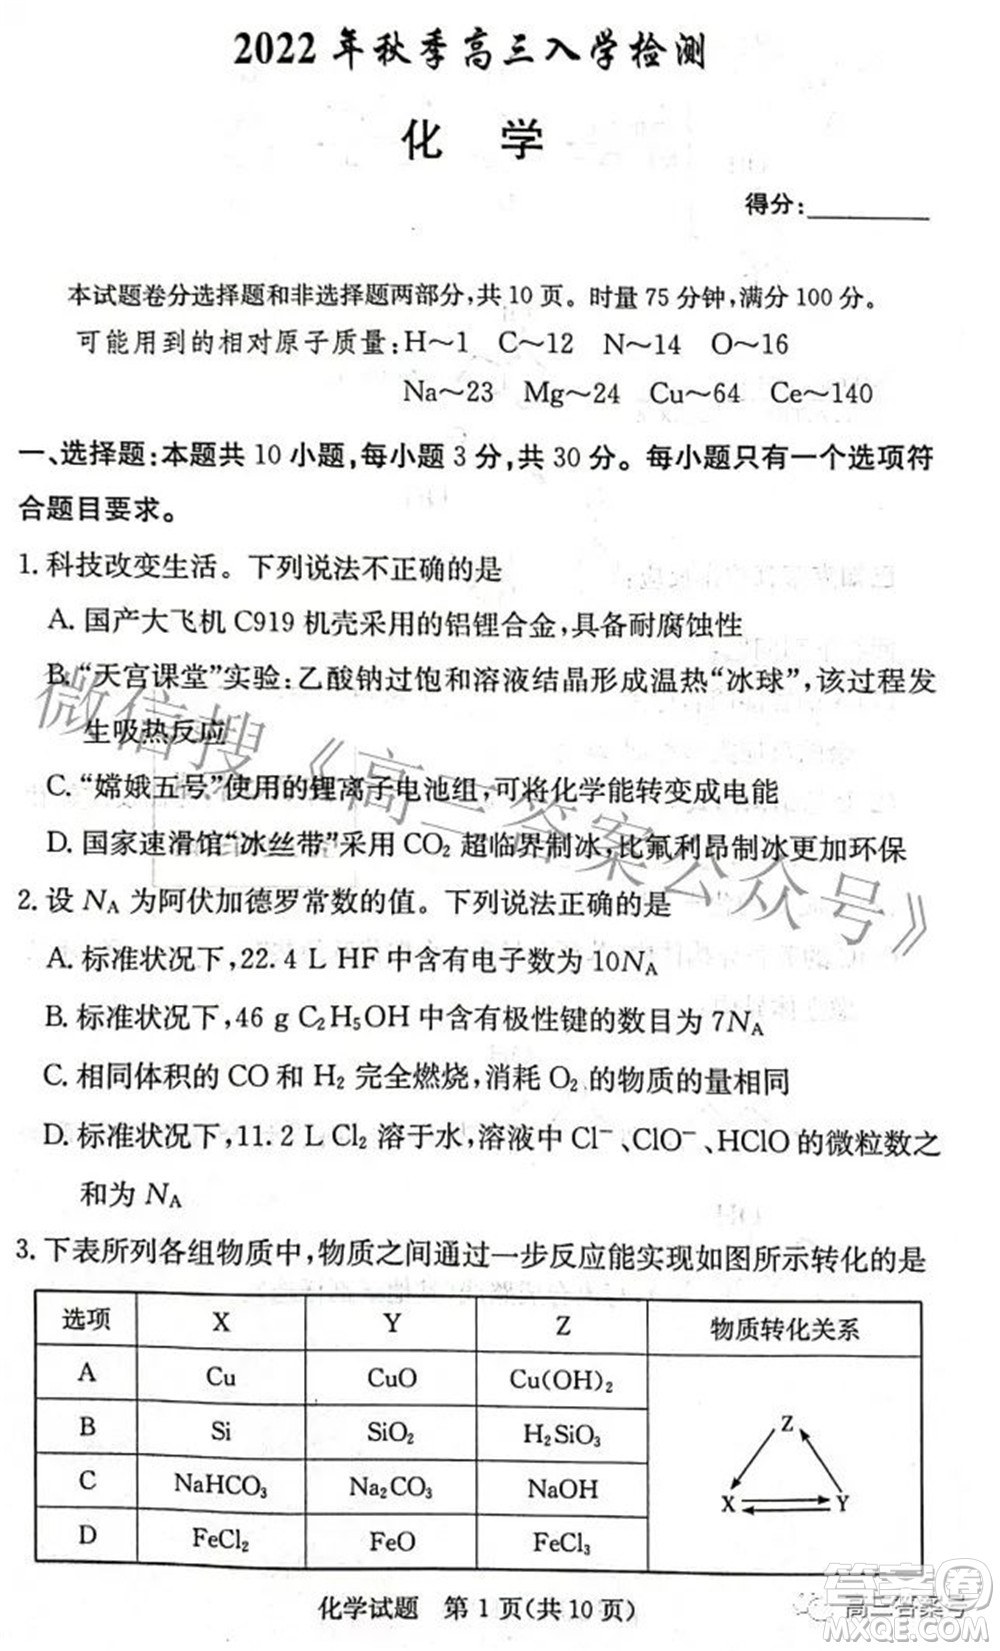 2022 年秋季高三入学检测
化 学
得分:
本试题卷分选择题和非选择题两部分,共 10 页。时量 75 分钟,满分 100 分。
可能用到的相对原子质量:H～1 C～12 N～14 O～16
Na～23 Mg～24 Cu～64 Ce～140
一、选择题:本题共 10 小题,每小题 3 分,共 30 分。每小题只有一个选项符
合题目要求。
1. 科技改变生活。下列说法不正确的是
A. 国产大飞机 C919 机壳采用的铝锂合金,具备耐腐蚀性
B. “天宫课堂”实验:乙酸钠过饱和溶液结晶形成温热“冰球”,该过程发
生吸热反应
C. “嫦娥五号”使用的锂离子电池组,可将化学能转变成电能
D. 国家速滑馆“冰丝带”采用 CO₂ 超临界制冰,比氟利昂制冰更加环保
2. 设 Nₐ 为阿伏加德罗常数的值。下列说法正确的是
A. 标准状况下,22.4 L HF 中含有电子数为 10Nₐ
B. 标准状况下,46 g C₂H₅OH 中含有极性键的数目为 7Nₐ
C. 相同体积的 CO 和 H₂ 完全燃烧,消耗 O₂ 的物质的量相同
D. 标准状况下,11.2 L Cl₂ 溶于水,溶液中 Cl⁻、ClO⁻、HClO 的微粒数之
和为 Nₐ
3. 下表所列各组物质中,物质之间通过一步反应能实现如图所示转化的是
选项 X Y Z 物质转化关系
A Cu CuO Cu(OH)₂
B Si SiO₂ H₂SiO₃
C NaHCO₃ Na₂CO₃ NaOH
D FeCl₂ FeO FeCl₃
Z
X Y
化学试题 第 1 页(共 10 页)
微信搜《高三答案公众号》
高三答案号
答案圈
MXQE.COM